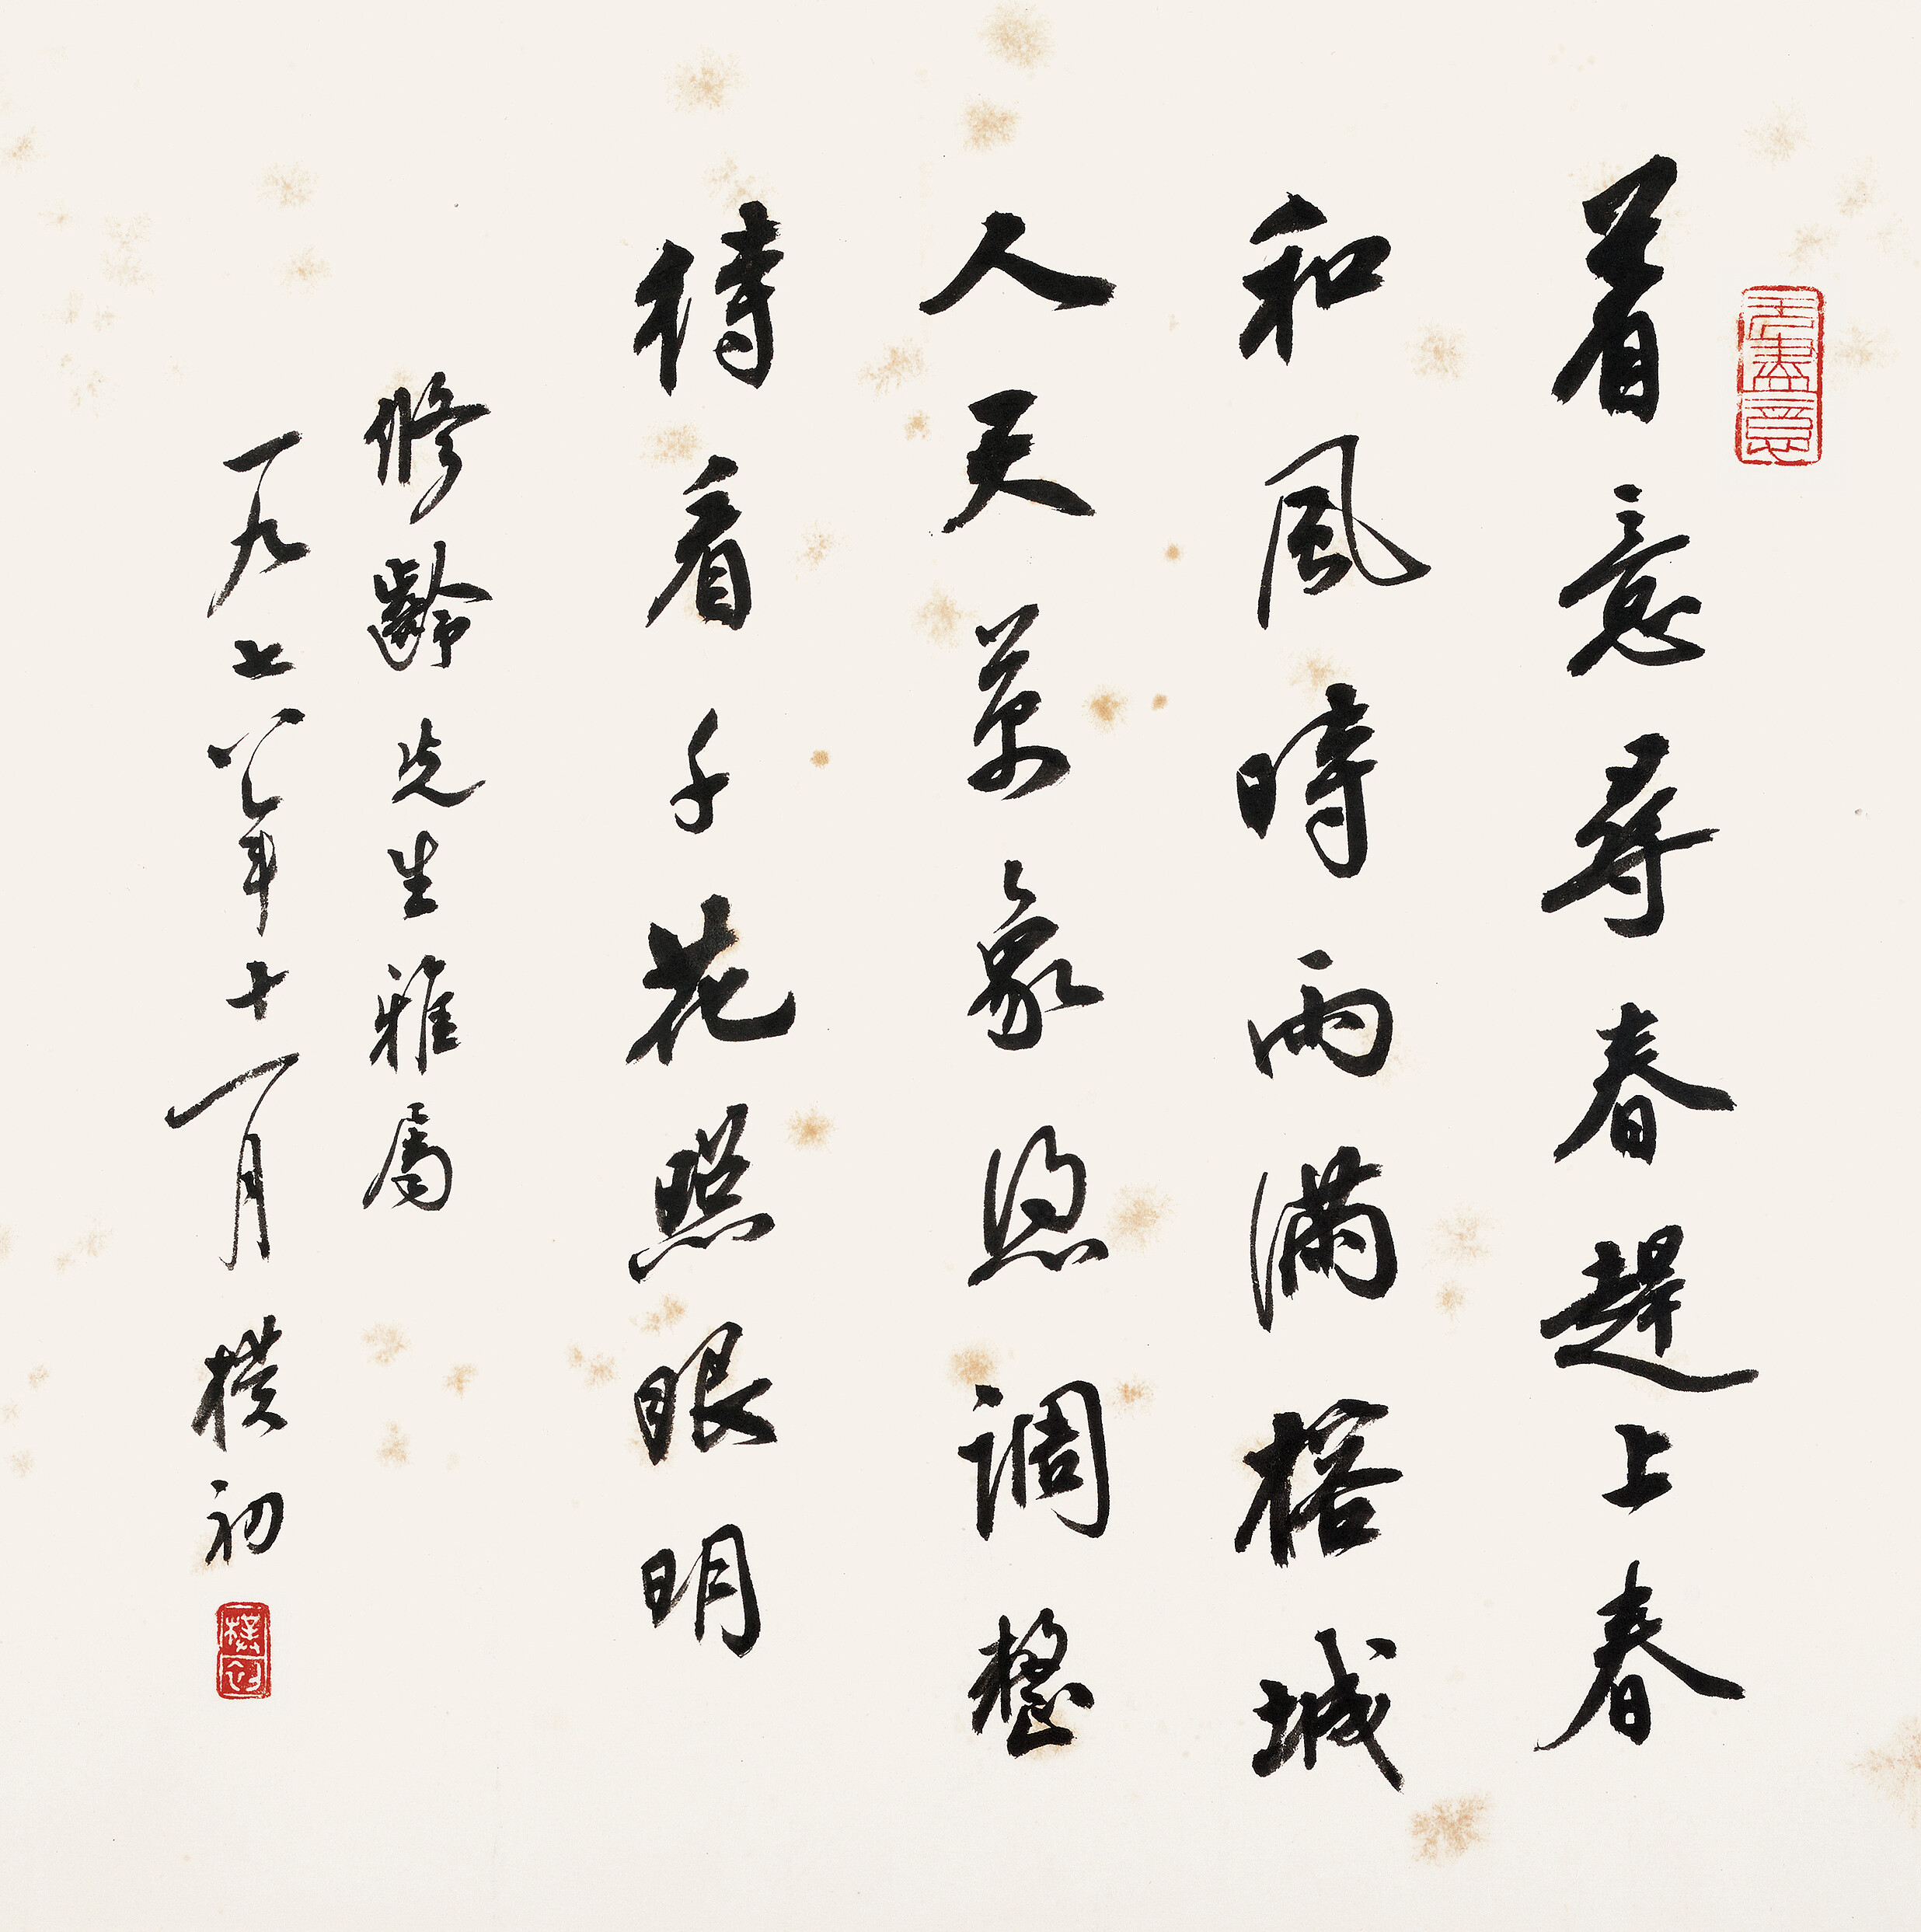 无盡意
着意尋春趕上春
和風時雨滿榕城
人天萬象調整
待看千花照眼明
修齡先生雅屬
一九七八年十一月 樸初
樸初